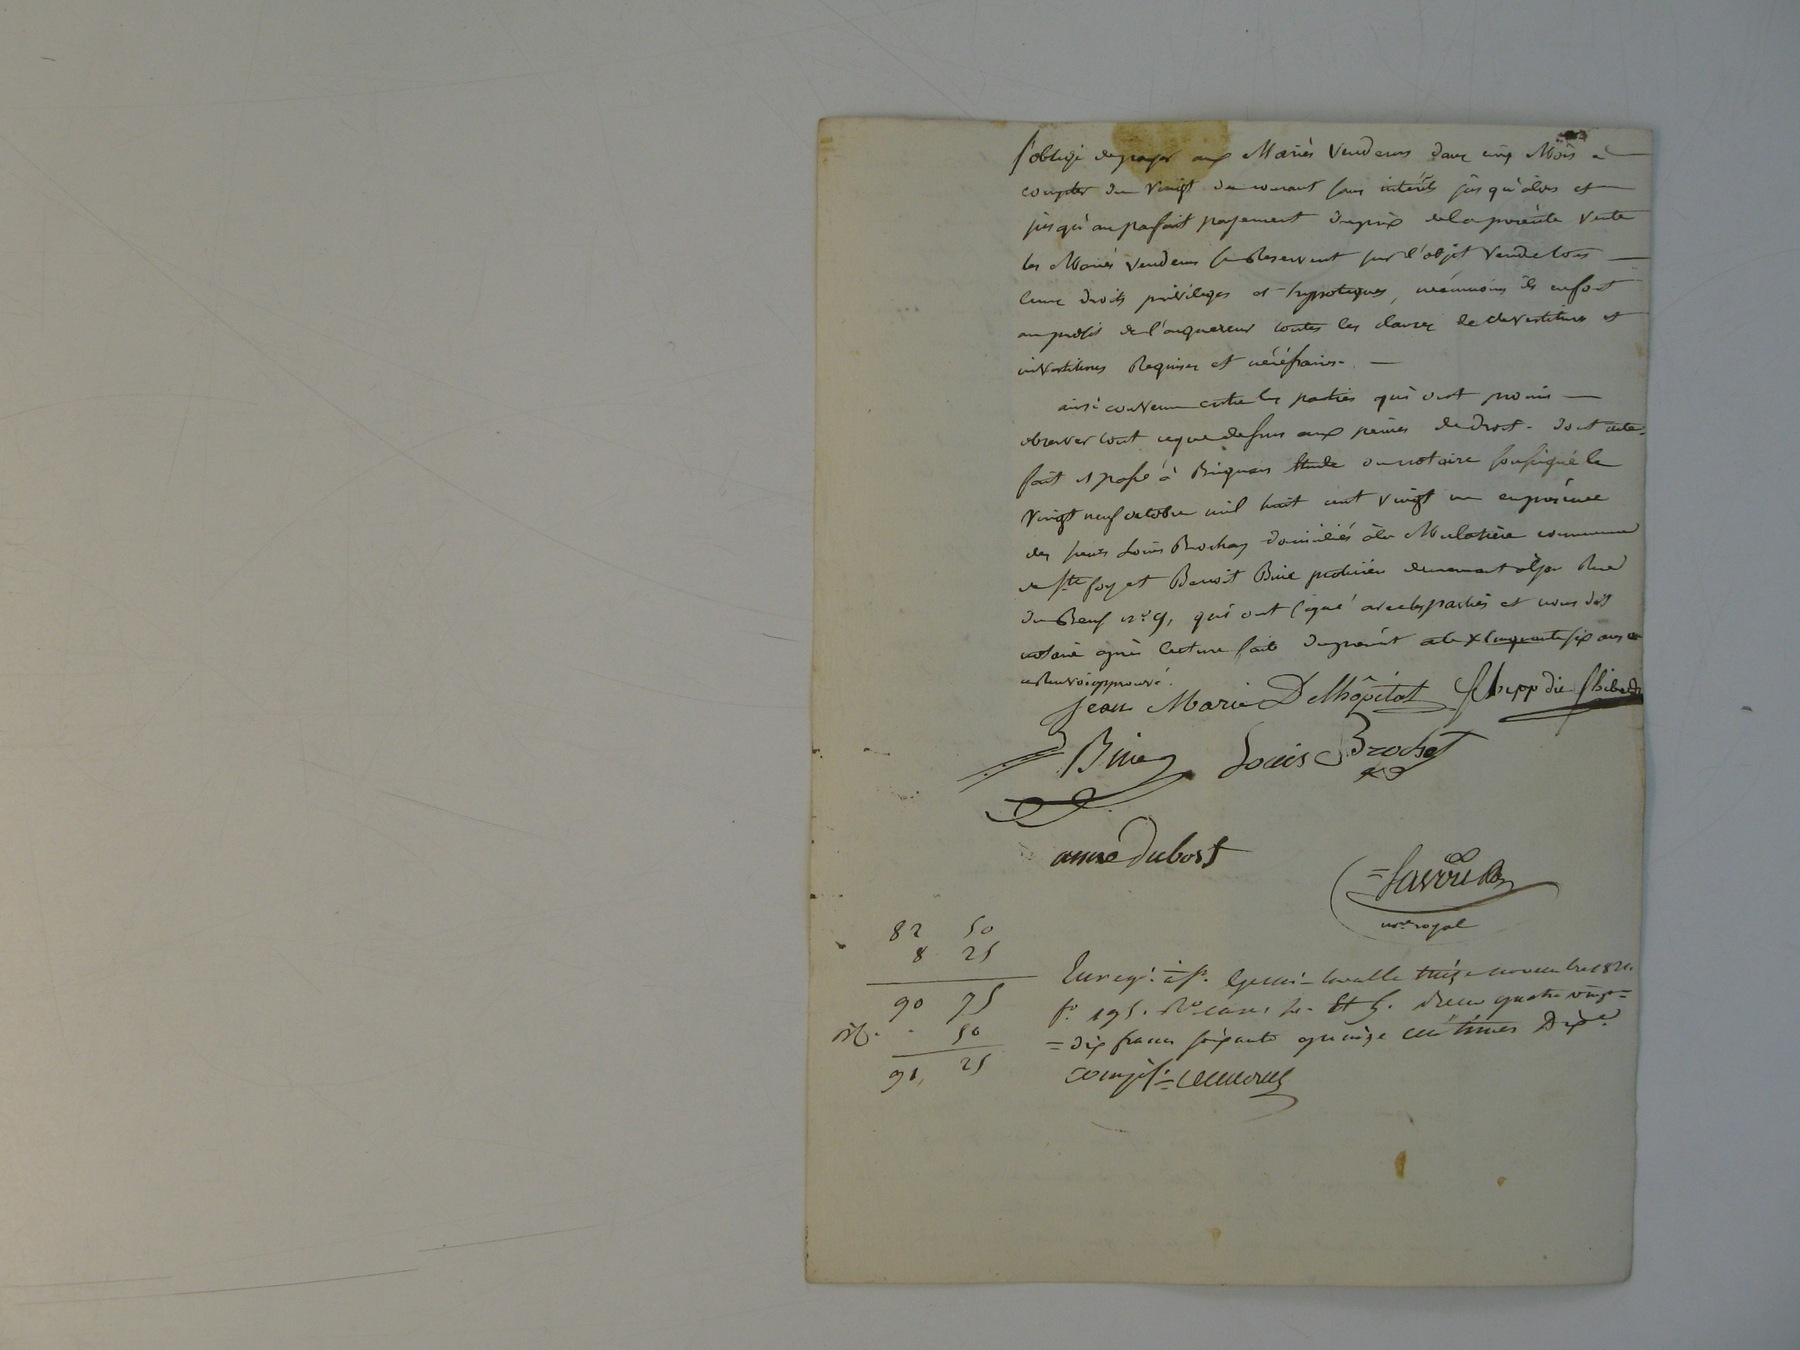 s'oblige de payer aux Mariés Vendeurs dans cinq Mois à
compter du Vingt du courant sans intérêts jusqu'alors et
jusqu'au parfait payement du prix de la présente Vente
les Mariés Vendeurs se Reservent sur l'objet Vendu tous
leurs droits privileges et hypoteques, néanmoins ils en font
au profit de l'acquereur toutes les clauses de devestiture et
investitures Requises et nécéssaires.
ainsi convenu entre les parties qui ont promis
observer tout ce que dessus aux peines de droit. dont acte
fait et passé à Brignais Etude du notaire soussigné le
Vingt neuf octobre mil huit cent vingt un en présence
des sieurs Louis Brochay domiciliés à la Mulatière commune
de Ste foy et Benoit Bine demeurant à Lyon Rue
du Beuf n° 9, qui ont signé avec les parties et nous dit
notaire après lecture faite du présent acte x cinquante six ans
ce Renvoi approuvé.
Jean Marie Delhôpital
Bine Louis Brochet
anne Dubost
nre royal
82 50
8 25
90 75
50
91, 25
Enregé. à St. Genis-Laval le treize novembre 1821.
fo. 195. Ro. cases 4. Et 5. Reçu quatre vingt=
=dix francs soixante quinze centimes Dixe.
compis.